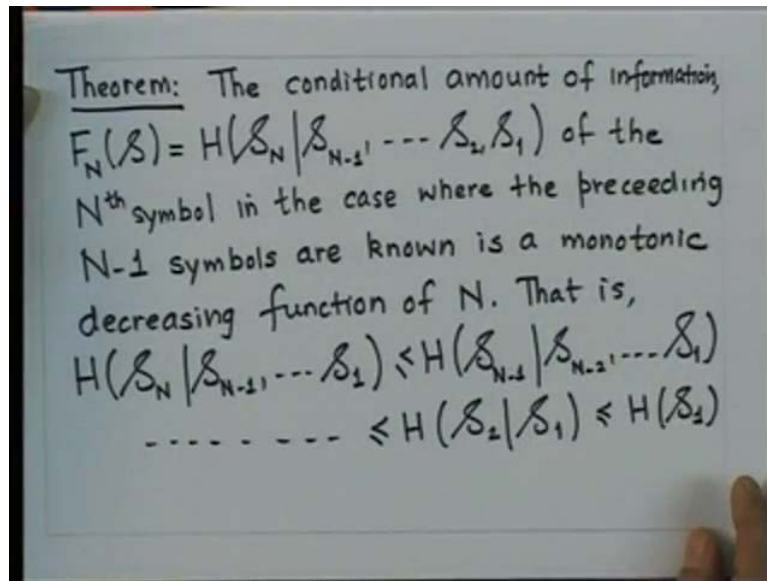 Theorem: The conditional amount of information,
F_N(S) = H(S_N | S_{N-1}, --- S_2, S_1) of the
Nth symbol in the case where the preceeding
N-1 symbols are known is a monotonic
decreasing function of N. That is,
H(S_N | S_{N-1}, --- S_1) ≤ H(S_{N-1} | S_{N-2}, --- S_1)
-- - - - - - --- ≤ H(S_2 | S_1) ≤ H(S_1)